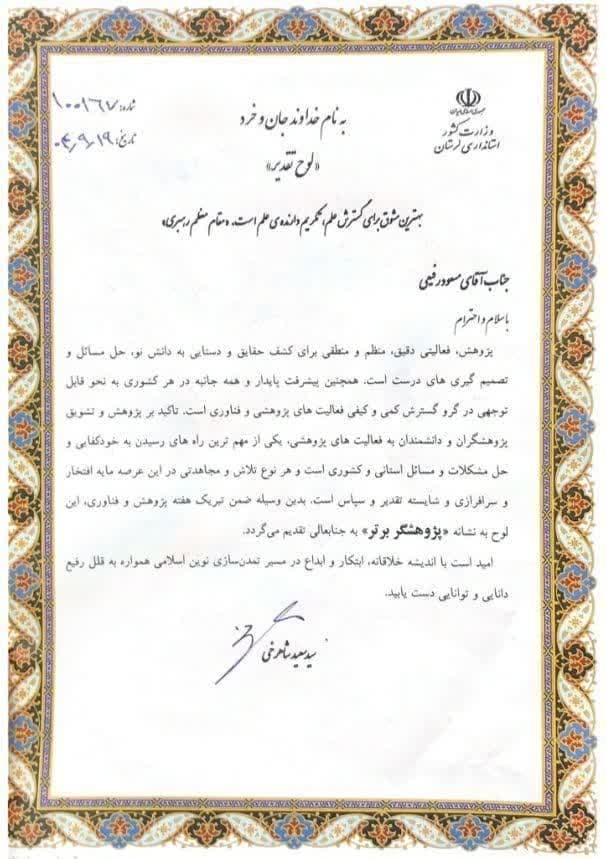 به نام خداوند جان و خرد
«لوح تقدیر»
جمهوری اسلامی ایران
وزارت کشور
استانداری لرستان
شماره: ۱۰۰۱۶۷
تاریخ: ۰۴٫۹٫۱۹
بهترین مشوق برای گسترش علم، تکریم دارنده‌ی علم است. «مقام معظم رهبری»
جناب آقای مسعود رفیعی
با سلام و احترام
پژوهش، فعالیتی دقیق، منظم و منطقی برای کشف حقایق و دستابی به دانش نو، حل مسائل و
تصمیم گیری های درست است. همچنین پیشرفت پایدار و همه جانبه در هر کشوری به نحو قابل
توجهی در گرو گسترش کمی و کیفی فعالیت های پژوهشی و فناوری است. تاکید بر پژوهش و تشویق
پژوهشگران و دانشمندان به فعالیت های پژوهشی، یکی از مهم ترین راه های رسیدن به خودکفایی و
حل مشکلات و مسائل استانی و کشوری است و هر نوع تلاش و مجاهدتی در این عرصه مایه افتخار
و سرافرازی و شایسته تقدیر و سپاس است. بدین وسیله ضمن تبریک هفته پژوهش و فناوری، این
لوح به نشانه «پژوهشگر برتر» به جنابعالی تقدیم می‌گردد.
امید است با اندیشه خلاقانه، ابتکار و ابداع در مسیر تمدن‌سازی نوین اسلامی همواره به قلل رفیع
دانایی و توانایی دست یابید.
سید سعید شاهرخی